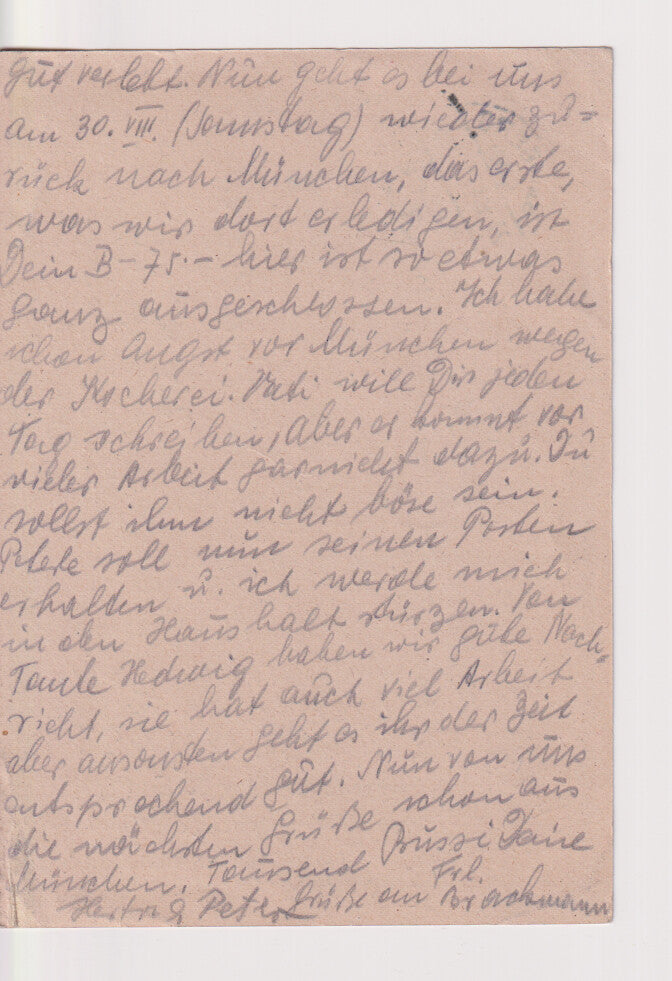 gut verlebt. Nun geht es bei uns
am 30. VIII. (Sonnstag) wieder zu=
rück nach München, das erste,
was wir dort erledigen, ist
Dein B-75.- hier ist so etwas
ganz ausgeschlossen. Ich habe
schon Angst vor München wegen
der Kocherei. Vati will Dir jeden
Tag schreiben, aber er kommt vor
vieler Arbeit garnicht dazu. Du
sollst ihm nicht böse sein.
soll nun seinen Posten
erhalten u. ich werde mich
in den Haushalt stürzen. Von
Tante Hedwig haben wir gute Nach-
richt, sie hat auch viel Arbeit
aber ansonsten geht es ihr der Zeit
entsprechend gut. Nun von uns
die nächsten Grüße schon aus
München. Tausend Bussi Deine
Peter Grüße an Frl. Brachmann